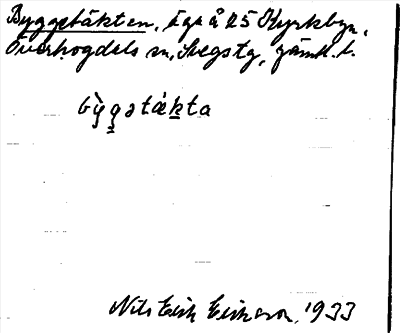 Byggetäkten, äga å R5 Kyrkbyn,
Överhogdals sn, Svegs tg, Jämtl. l.
bỳg̲ətäk̲ta
Nils Erik Erikson, 1933